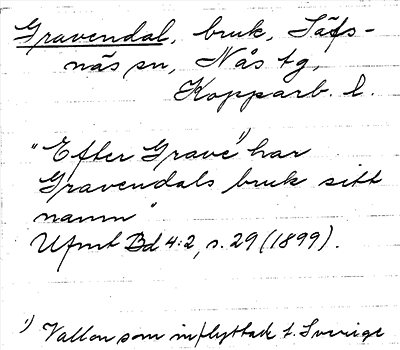 Gravendal, bruk, Säfs-
näs sn, Nås tg,
Kopparb. l.
"Efter Gravé¹⁾ har
Gravendals bruk sitt
namn"
Ufmt Bd 4:2, s. 29 (1899).
¹⁾ Vallon som inflyttade t. Sverige